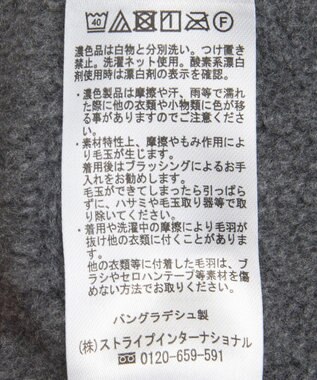 40 F
濃色品は白物と分別洗い。つけ置き
禁止。洗濯ネット使用。酸素系漂白
剤使用時は漂白剤の表示を確認。
・濃色製品は摩擦や汗、雨等で濡れ
た際に他の衣類や小物類に色が移
る事がありますのでご注意くださ
い。
・素材特性上、摩擦やもみ作用によ
り毛玉が生じます。
着用後はブラッシングによるお手
入れをお勧めします。
毛玉ができてしまったら引っぱら
ずに、ハサミや毛玉取り器等で取
り除いてください。
・着用や洗濯中の摩擦により毛羽が
抜け他の衣類に付くことがありま
す。
他の衣類等に付着した毛羽は、ブ
ラシやセロハンテープ等素材を傷
めない方法でお取りください。
バングラデシュ製
(株)ストライプインターナショナル
0120-659-591